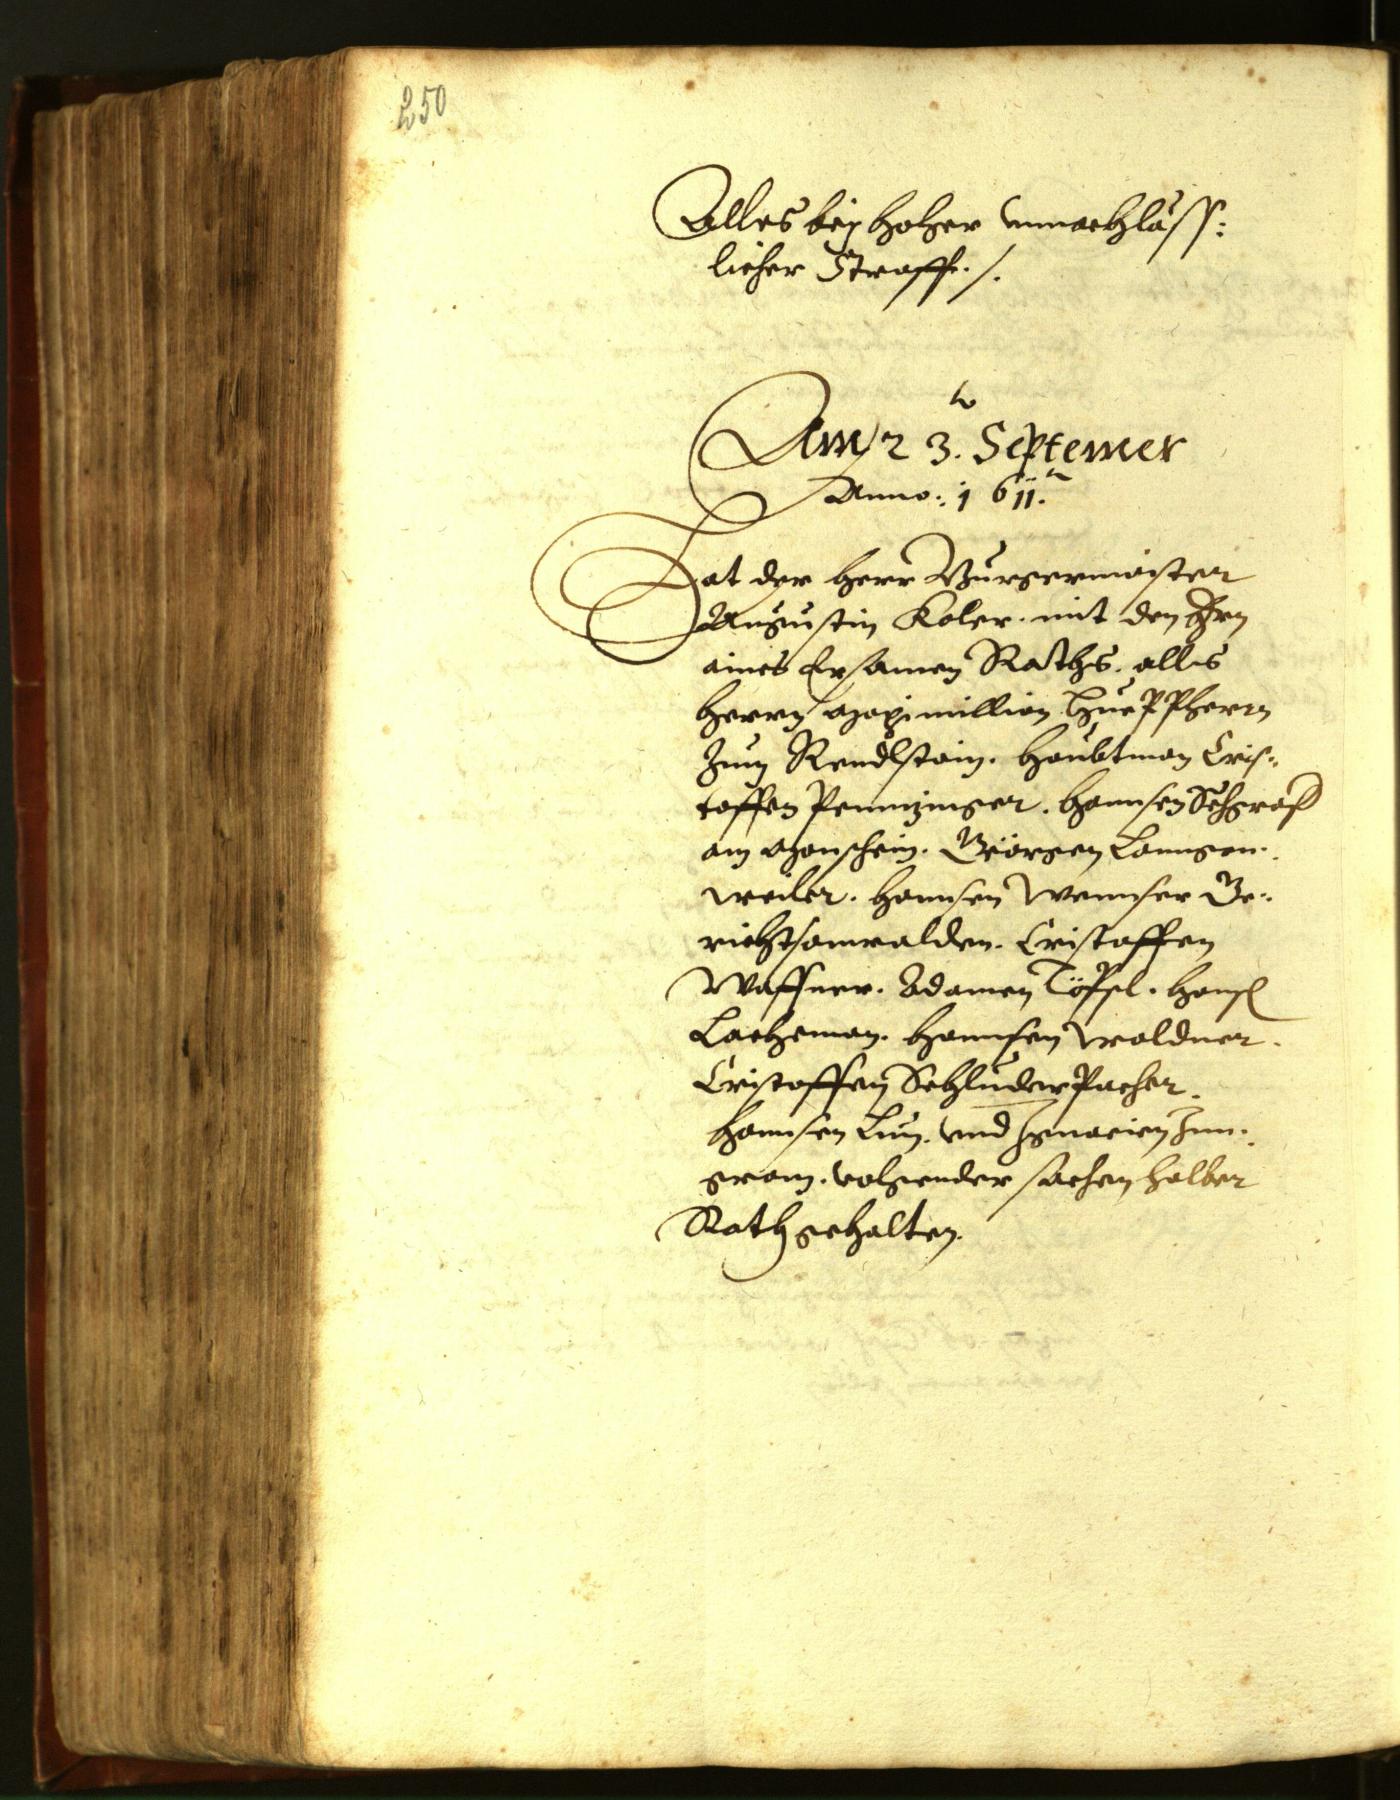 250
Alles beÿ hoher vnnachläss:
licher Straff. /.
Am 23. Septemer
Anno: 1611.
Hat der herr Burgermaister
Augustin Koler. mit den Hrn
aines Ersamen Raths. alls
herrn Maximillian Hueppherrn
zum Rendlstain. haubtman Cris-
toffen Penntzinger. hannsen Schgraff
am Manschein. Geörgen Lanngen-
weiler. hannsen Wennser Ge-
richtsanwalden. Cristoffen
Waffner. Adamen Töpsl. hannß
Lacheman. hannsen Waldner.
Cristoffen Schluderpacher.
hannsen Lun. vnd Ignacien Inn-
gram. volgender sachen halber
Rath gehalten.